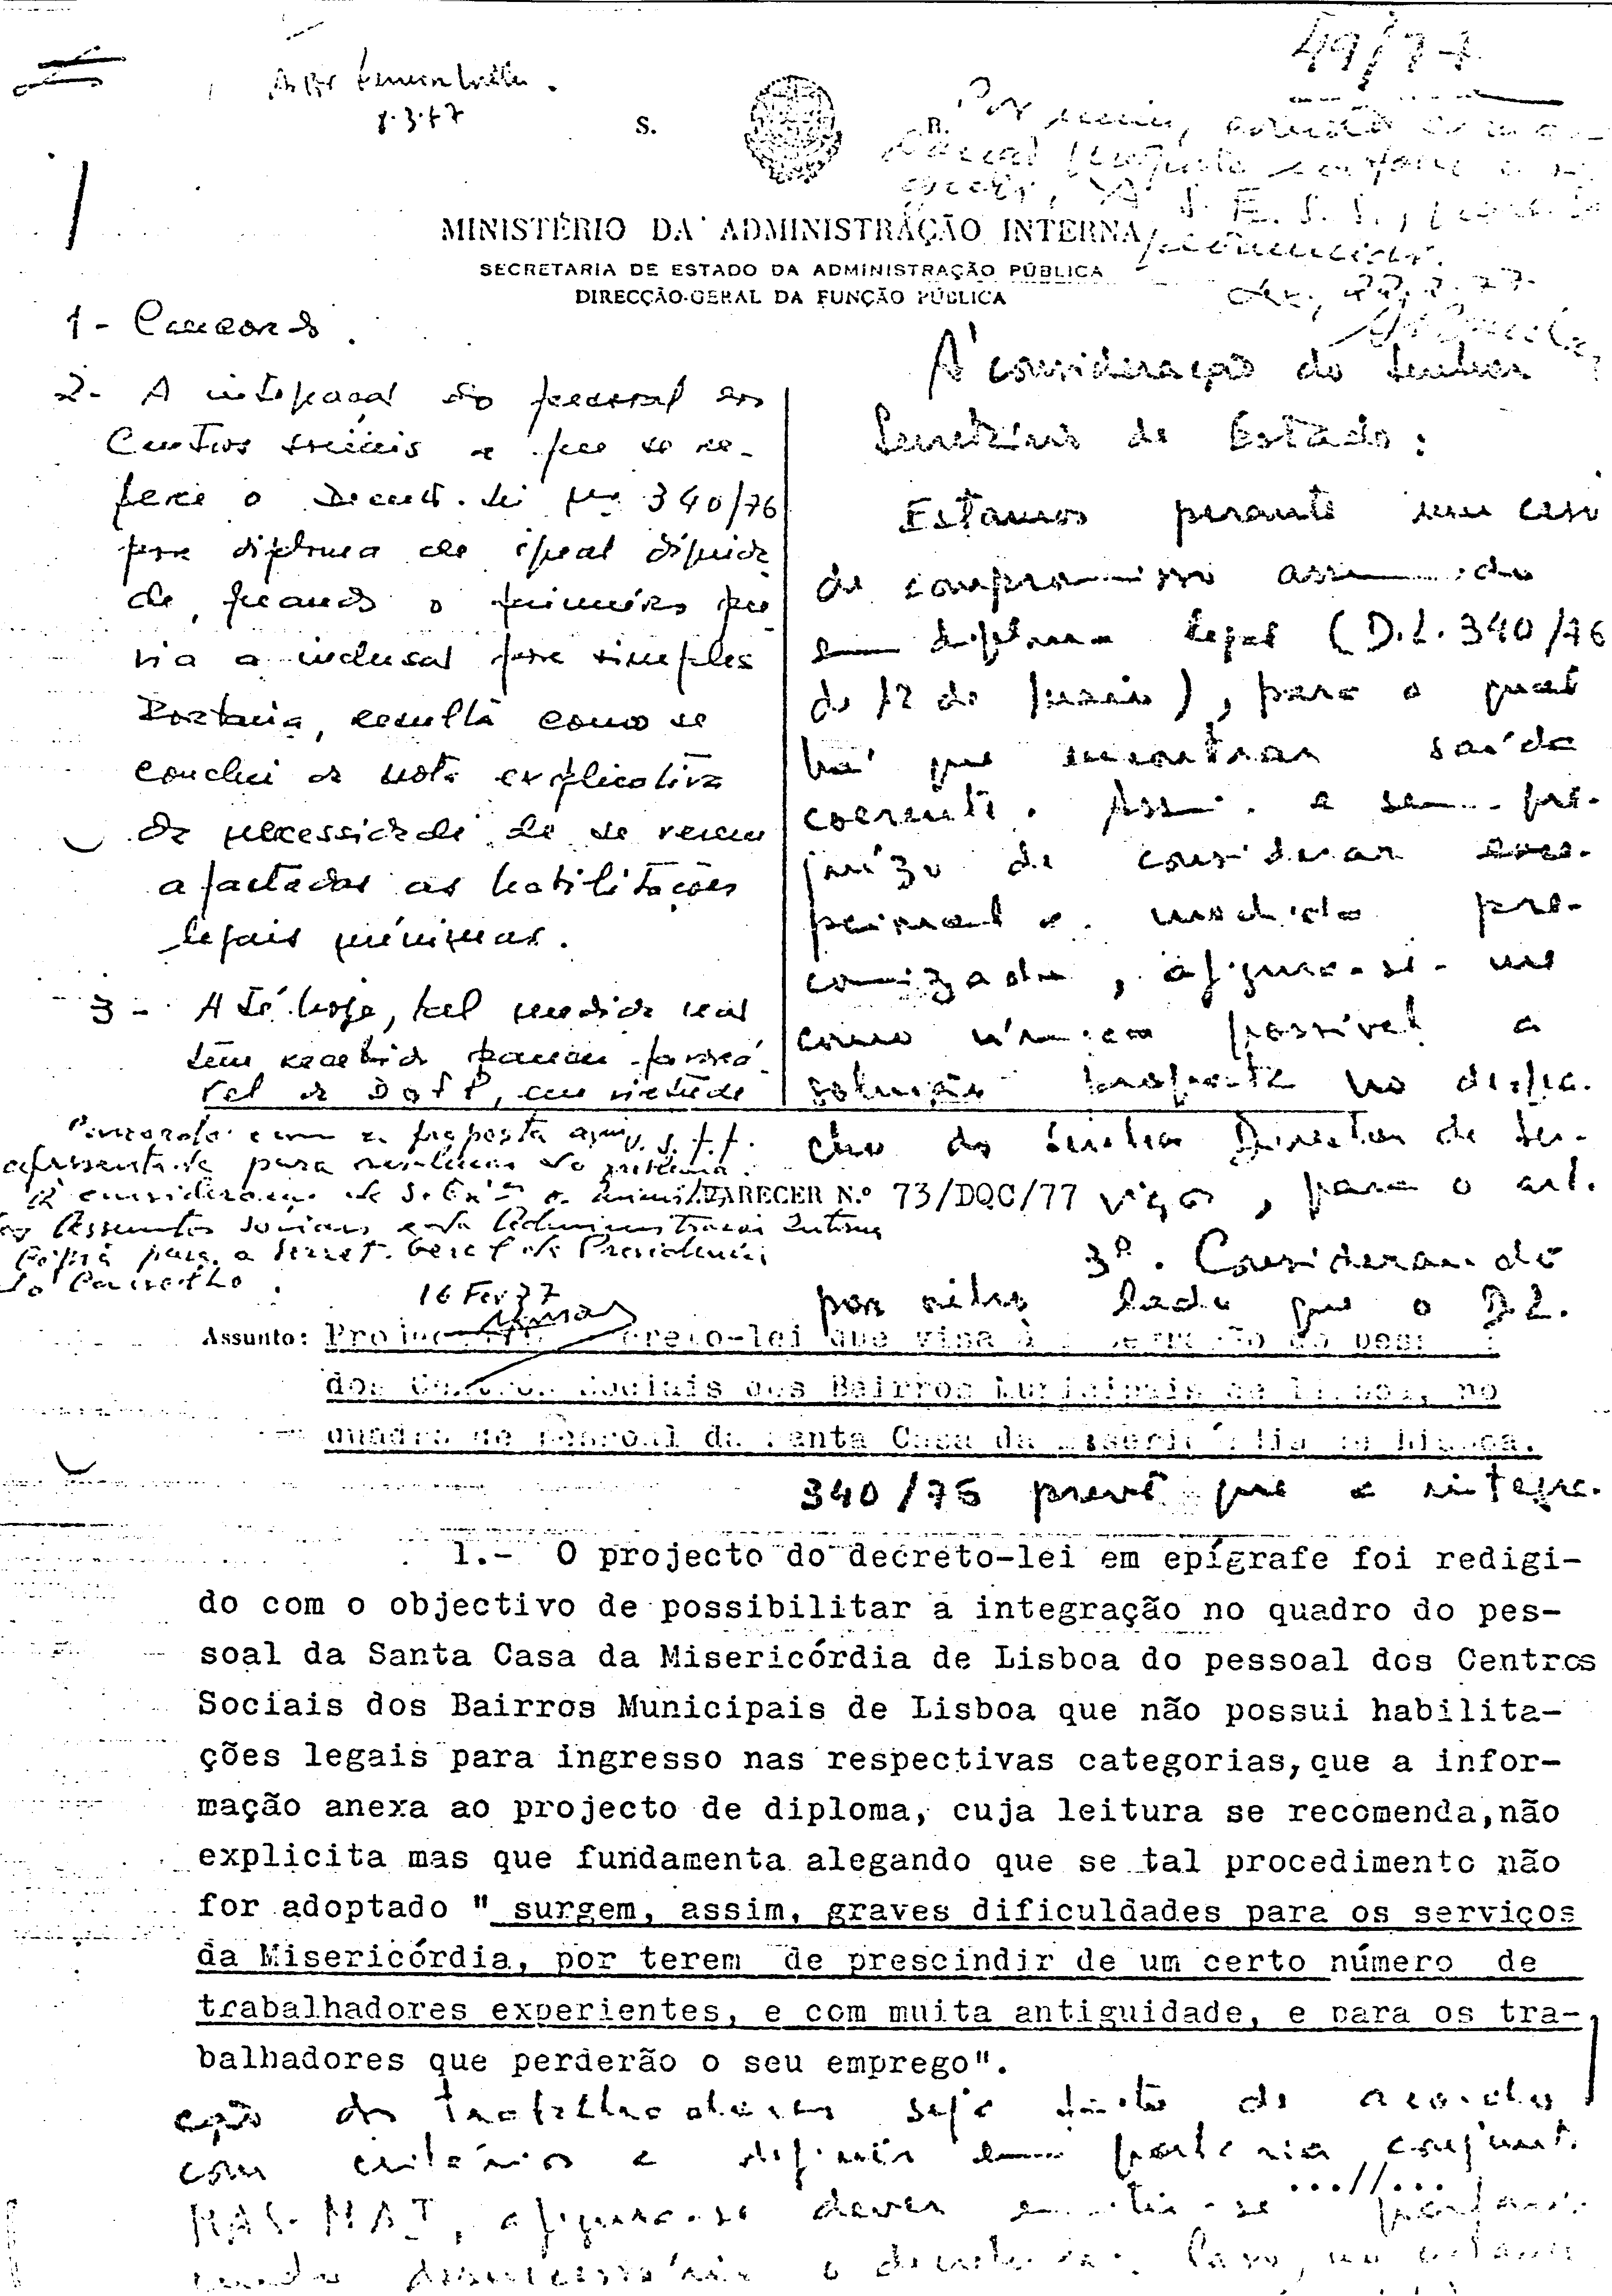 49/77
8.3.77
S. R.
MINISTÉRIO DA ADMINISTRAÇÃO INTERNA
SECRETARIA DE ESTADO DA ADMINISTRAÇÃO PÚBLICA
DIRECÇÃO-GERAL DA FUNÇÃO PÚBLICA
Por mim,
S.E.S.S.,
1 - Concordo.
2 - A integração do pessoal dos
Centros sociais a que se re-
fere o Decreto-Lei nº 340/76
por diploma de igual dignida
de, quando o primeiro pre
via a inclusão por simples
Portaria, resulta como se
conclui da nota explicativa
da necessidade de se verem
afastadas as habilitações
legais mínimas.
3 - Até hoje, tal medida não
tem recebido parecer favorá-
vel da DGFP, em virtude
v.s.f.f.
À consideração do Senhor
Secretário de Estado:
Estamos perante um caso
de compromisso assumido
em diploma legal (D.L. 340/76
de 12 de Maio), para o qual
há que encontrar saída
coerente. Assim e sem pre-
juízo de considerar exce-
pcional a medida pre-
conizada, afigura-se-me
como única possível a
solução proposta no despa-
cho do Senhor Director de Ser-
viços, para o art.
3º. Considerando
por outro lado que o D.L.
Concordo com a proposta aqui
apresentada para resolução do problema.
À consideração de S. Exªs o Ministro
dos Assuntos Sociais e da Administração Interna
Cópia para a Secret. Geral da Presidência
do Conselho.
16 Fev 77
PARECER N.º 73/DQC/77
Assunto: Projecto de decreto-lei que visa à integração do pessoal
dos Centros Sociais dos Bairros Municipais de Lisboa, no
quadro de pessoal da Santa Casa da Misericórdia de Lisboa.
340/76 prevê que a integra-
1.- O projecto do decreto-lei em epígrafe foi redigi-
do com o objectivo de possibilitar a integração no quadro do pes-
soal da Santa Casa da Misericórdia de Lisboa do pessoal dos Centros
Sociais dos Bairros Municipais de Lisboa que não possui habilita-
ções legais para ingresso nas respectivas categorias,que a infor-
mação anexa ao projecto de diploma, cuja leitura se recomenda,não
explicita mas que fundamenta alegando que se tal procedimento não
for adoptado " surgem, assim, graves dificuldades para os serviços
da Misericórdia, por terem de prescindir de um certo número de
trabalhadores experientes, e com muita antiguidade, e para os tra-
balhadores que perderão o seu emprego".
ção dos trabalhadores seja feita de acordo
com critérios a definir em portaria conjunta
...//...
MAS-MAI, afigura-se dever